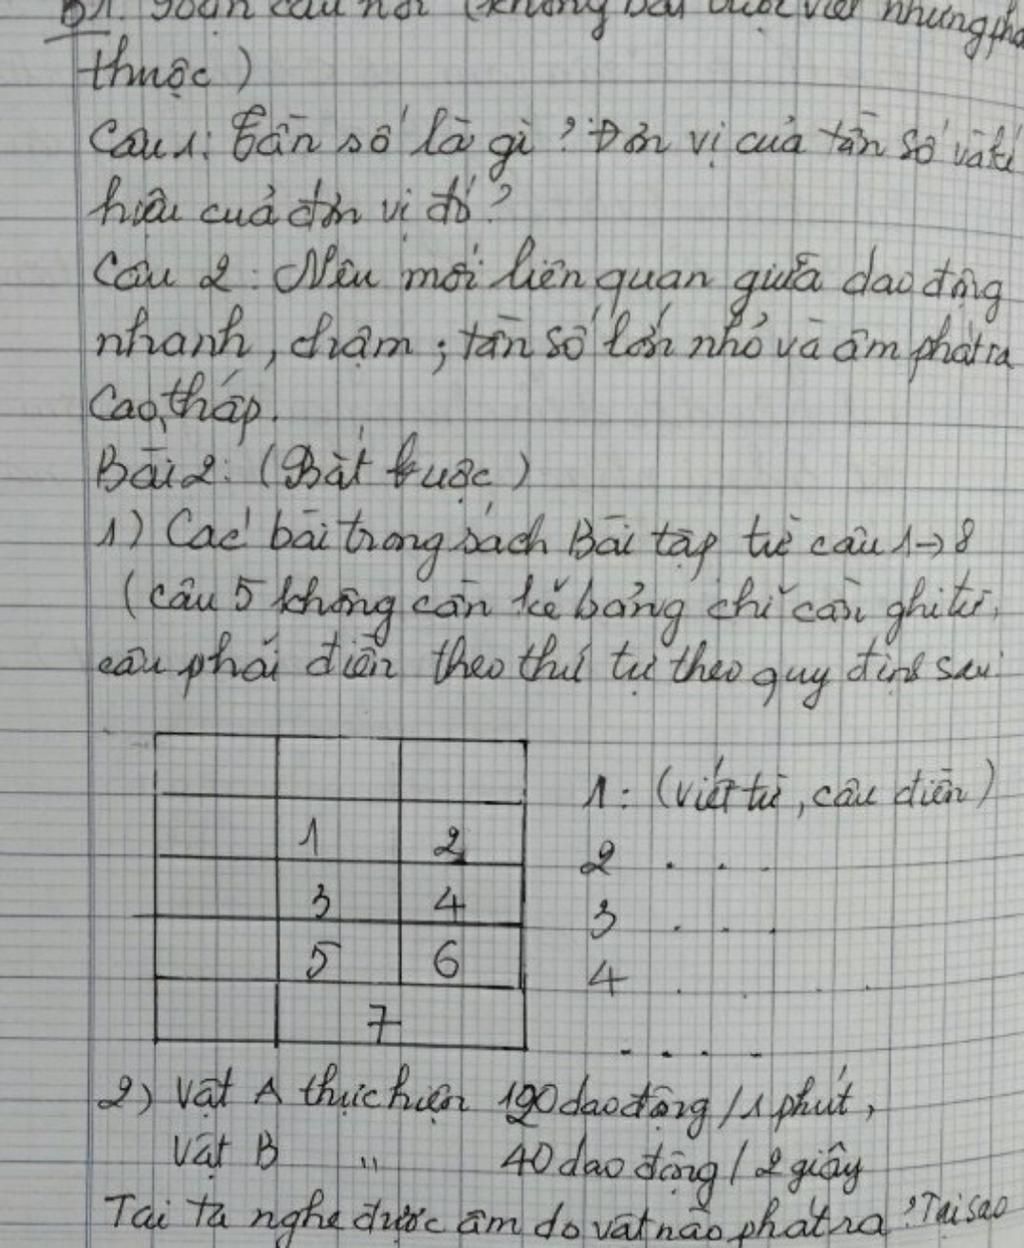 B1. Soạn câu hỏi (không bắt buộc viết nhưng phải
thuộc)
Câu 1: Tần số là gì? Đơn vị của tần số và kí
hiệu của đơn vị đó?
Câu 2: Nêu mối liên quan giữa dao động
nhanh, chậm; tần số lớn nhỏ và âm phát ra
Cao, thấp.
Bài 2: (Bắt buộc)
1) Các bài trong sách Bài tập từ câu 1→8
(câu 5 không cần kẻ bảng chỉ cần ghi từ,
câu phải điền theo thứ tự theo quy định sau:
1: (viết từ, câu điền)
1 2
2 . . .
3 4
3 . . .
5 6
4 . . .
7
. . . .
2) Vật A thực hiện 120 dao động / 1 phút,
Vật B " 40 dao động / 2 giây
Tai ta nghe được âm do vật nào phát ra? Tại sao